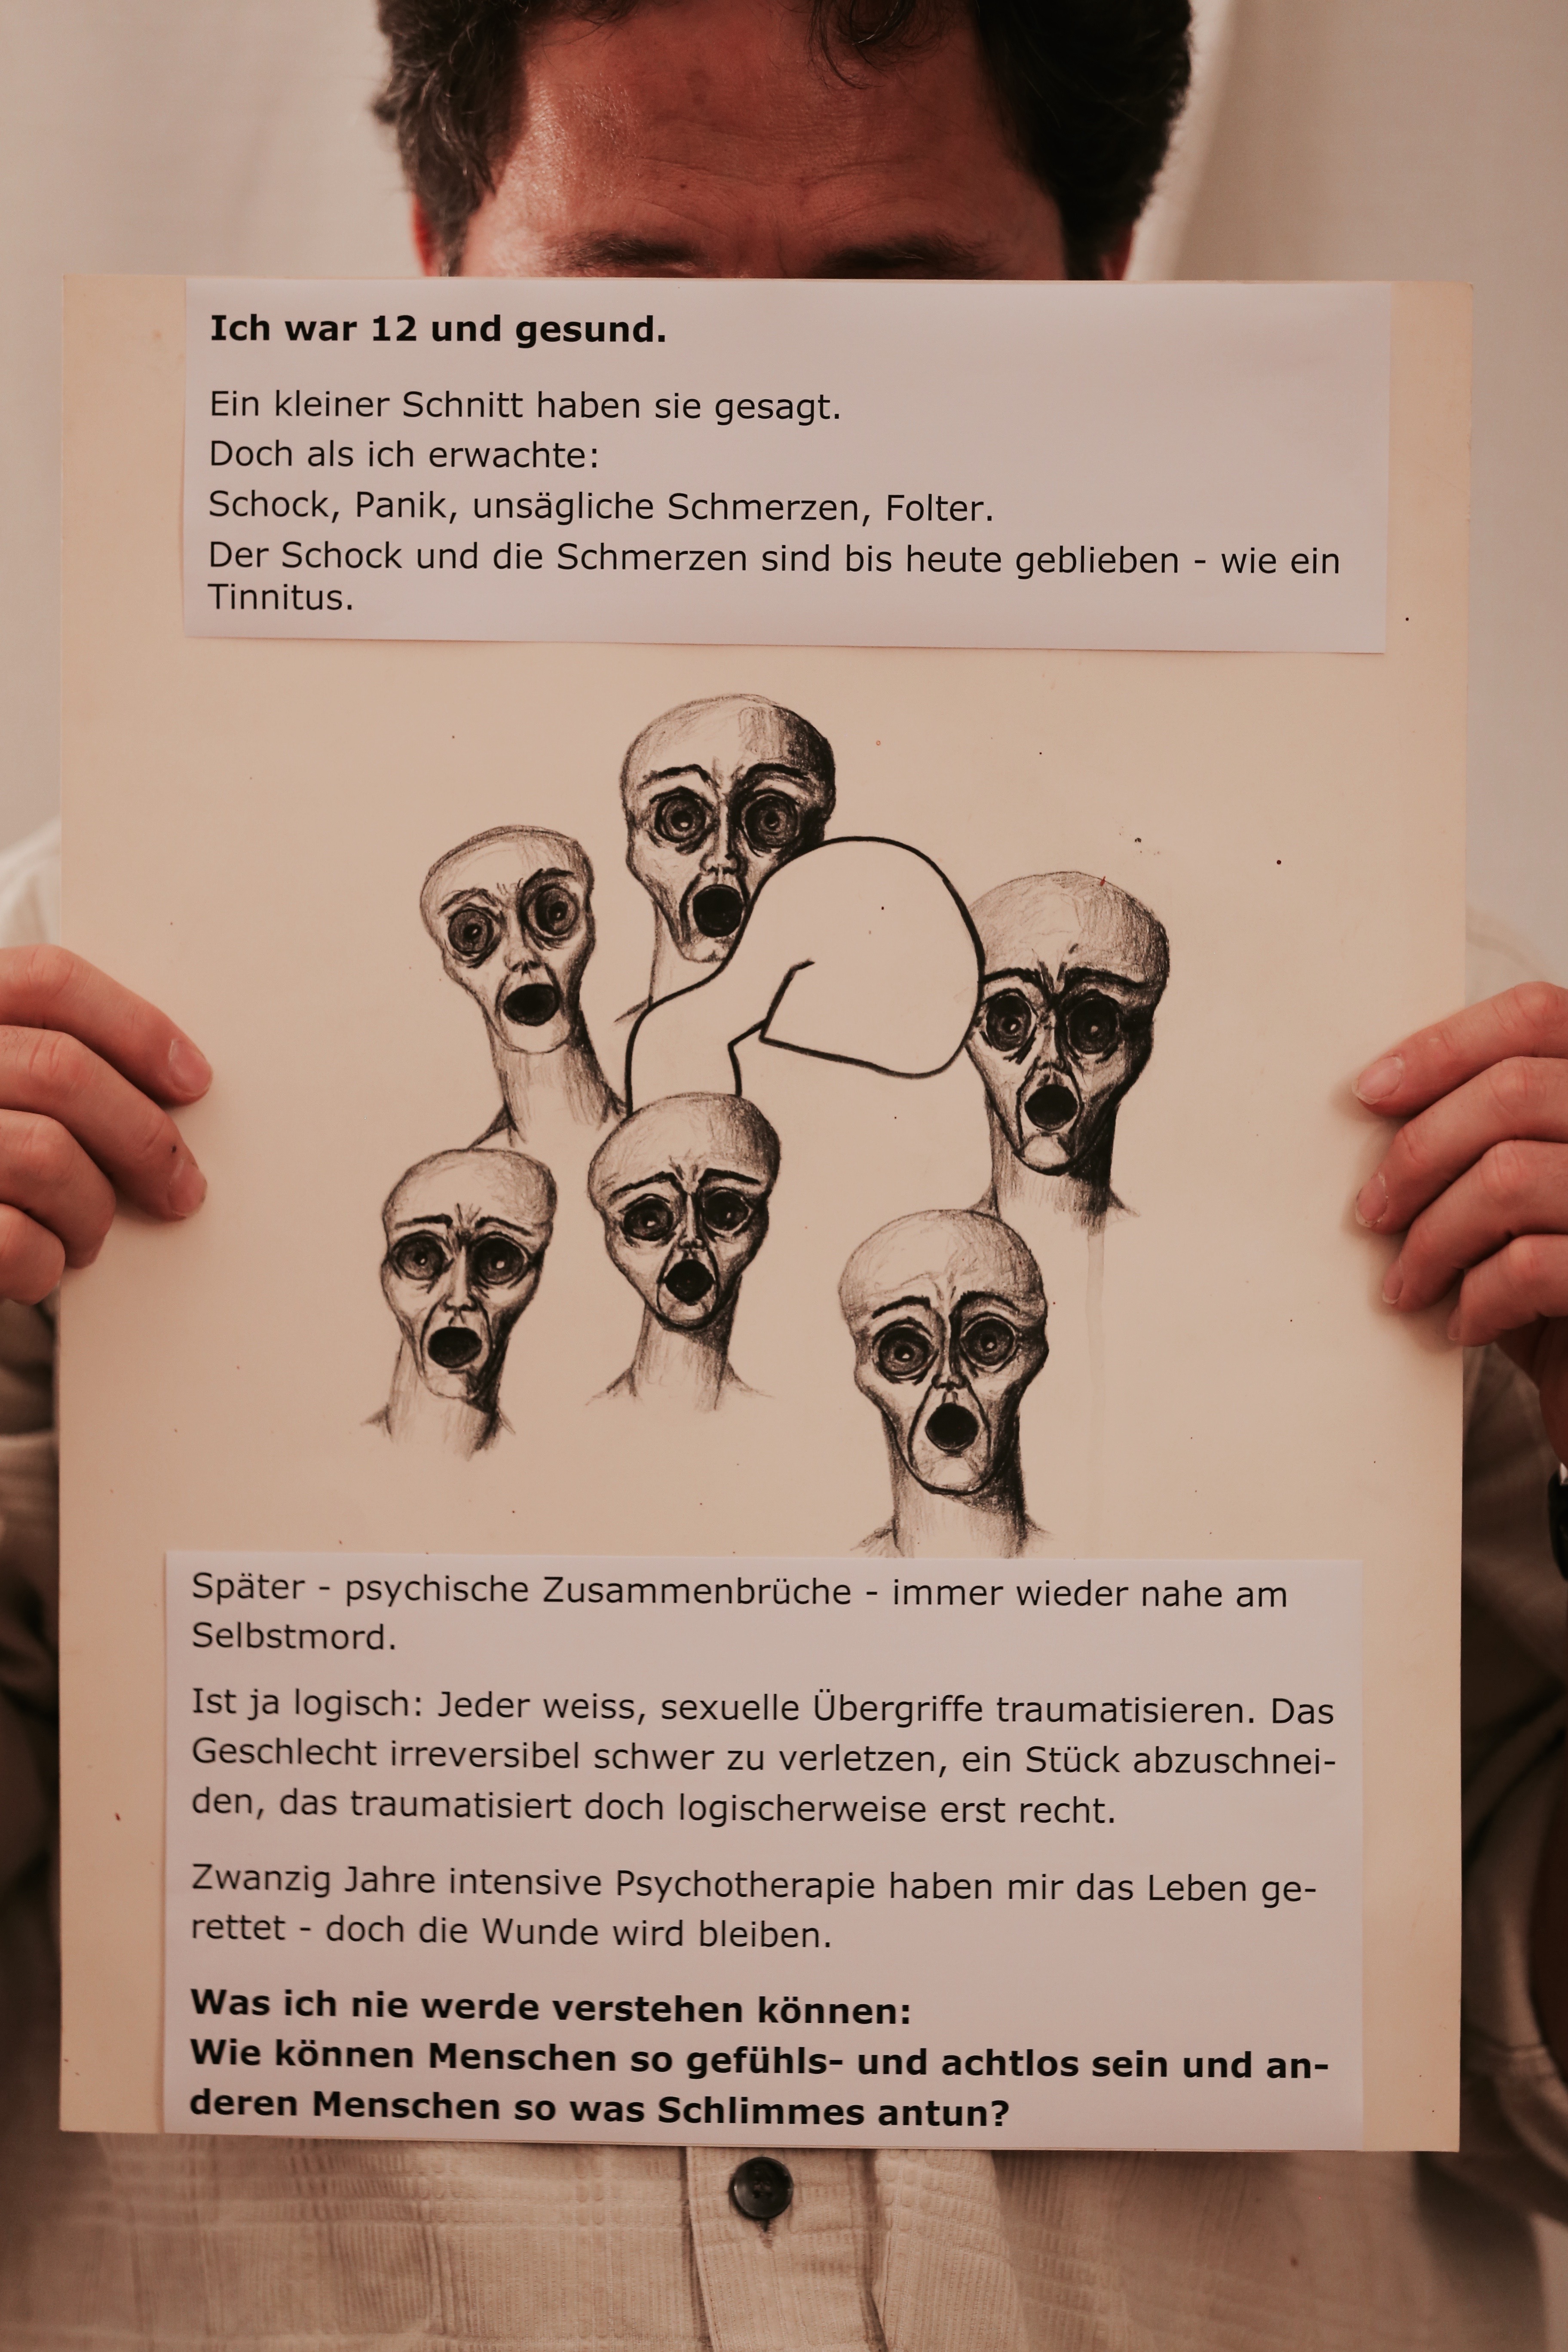 Ich war 12 und gesund.
Ein kleiner Schnitt haben sie gesagt.
Doch als ich erwachte:
Schock, Panik, unsägliche Schmerzen, Folter.
Der Schock und die Schmerzen sind bis heute geblieben - wie ein
Tinnitus.
Später - psychische Zusammenbrüche - immer wieder nahe am
Selbstmord.
Ist ja logisch: Jeder weiss, sexuelle Übergriffe traumatisieren. Das
Geschlecht irreversibel schwer zu verletzen, ein Stück abzuschnei-
den, das traumatisiert doch logischerweise erst recht.
Zwanzig Jahre intensive Psychotherapie haben mir das Leben ge-
rettet - doch die Wunde wird bleiben.
Was ich nie werde verstehen können:
Wie können Menschen so gefühls- und achtlos sein und an-
deren Menschen so was Schlimmes antun?